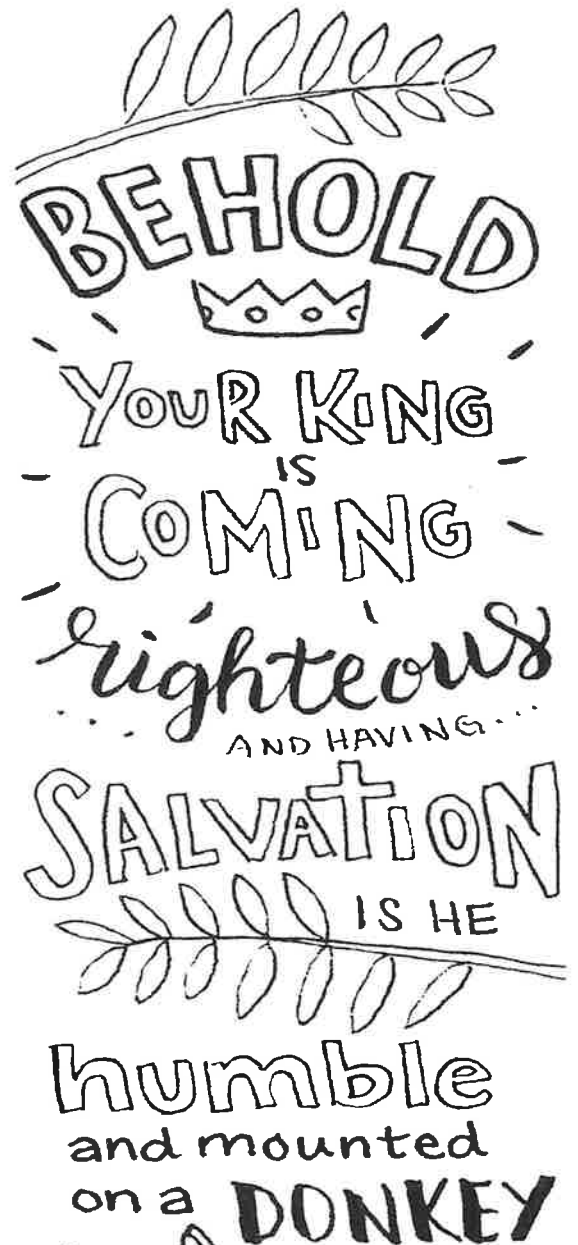 BEHOLD
YOUR KING
IS
COMING
righteous
AND HAVING...
SALVATION
IS HE
humble
and mounted
on a DONKEY